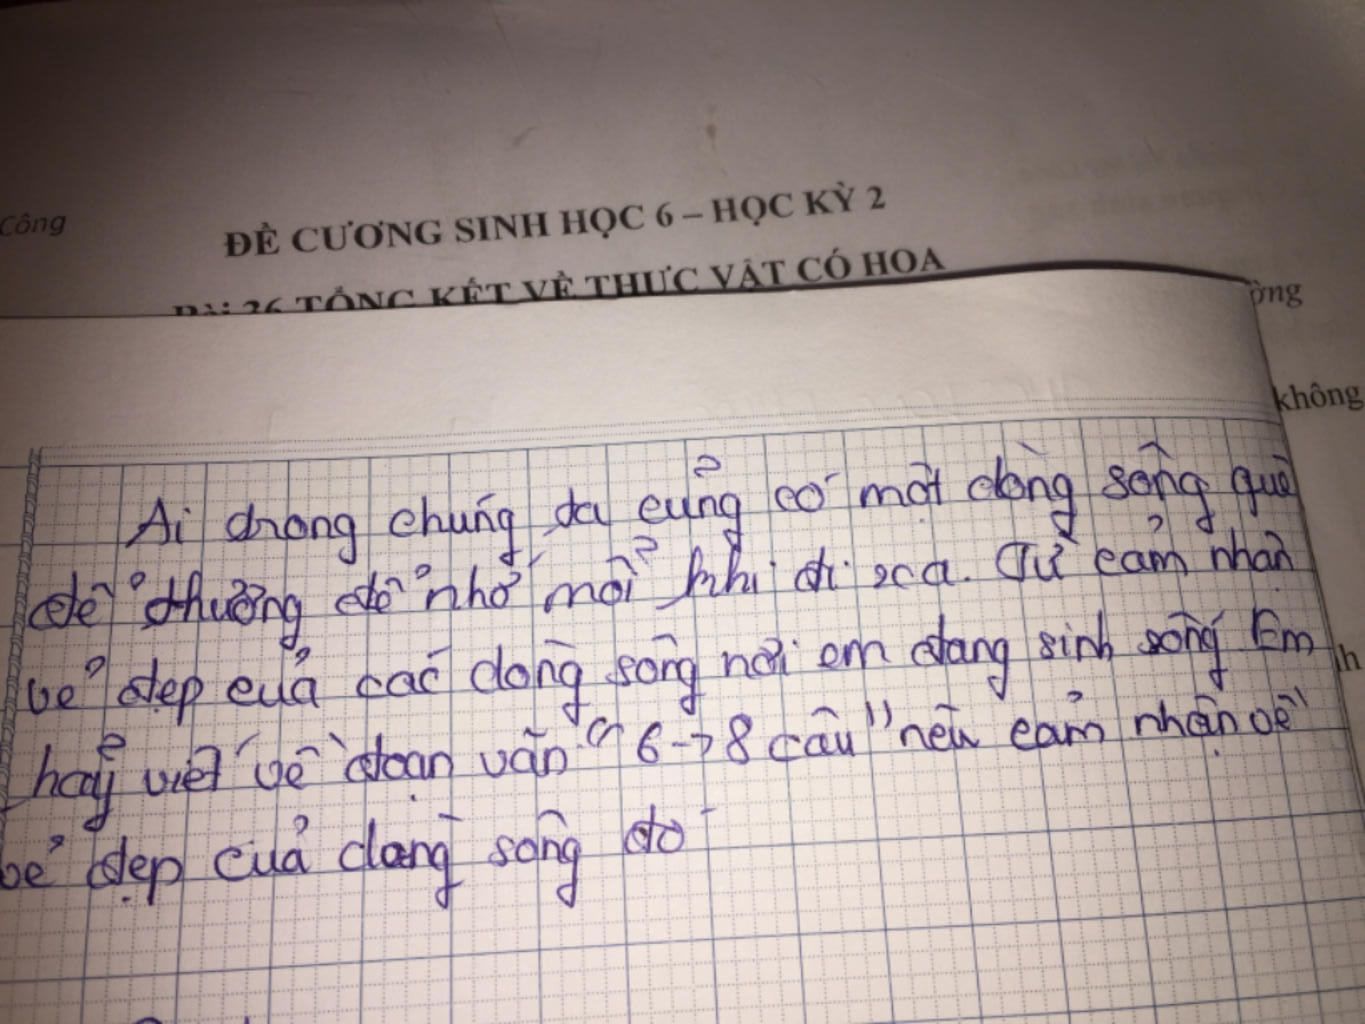 Công
ĐỀ CƯƠNG SINH HỌC 6 – HỌC KỲ 2
Bài 36 TỔNG KẾT VỀ THỰC VẬT CÓ HOA
ờng
không
Ai trong chúng ta củng có một dòng sông quê
để thương để nhớ mổi khi đi xa. Từ cảm nhận
vẻ đẹp của các dòng sông nơi em đang sinh sống Em
hãy viết về đoạn văn "6→8 câu" nêu cảm nhận về
vẻ đẹp của dòng sông đó